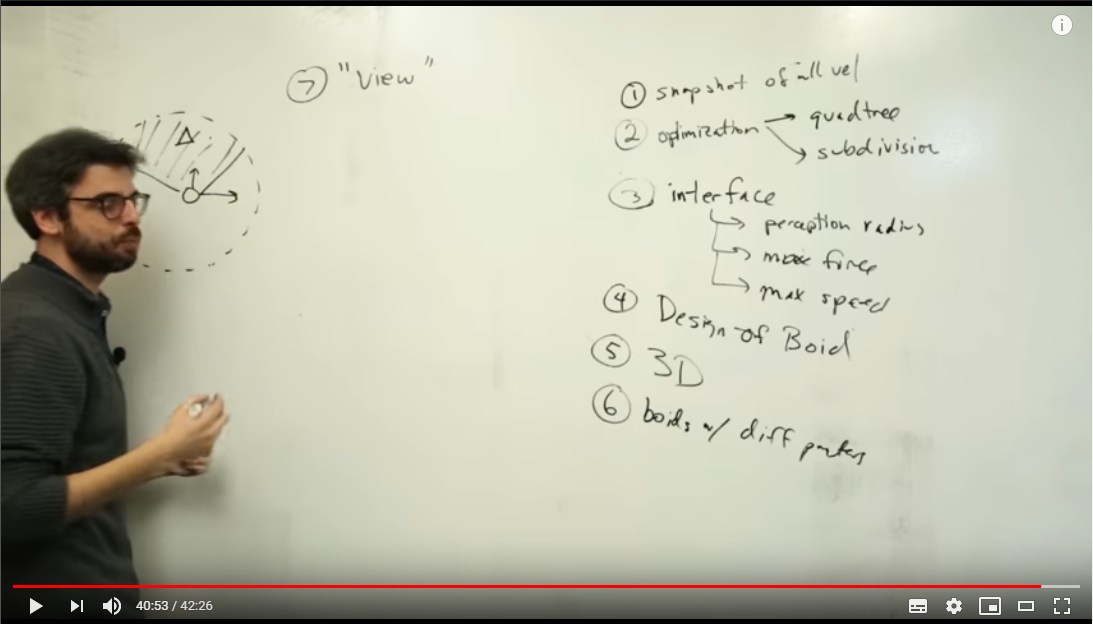 ⑦ "View"
① snapshot of all vel
② optimization → quadtree
→ subdivision
③ interface
→ perception radius
→ max force
→ max speed
④ Design of Boid
⑤ 3D
⑥ boids w/ diff
40:53 / 42:26